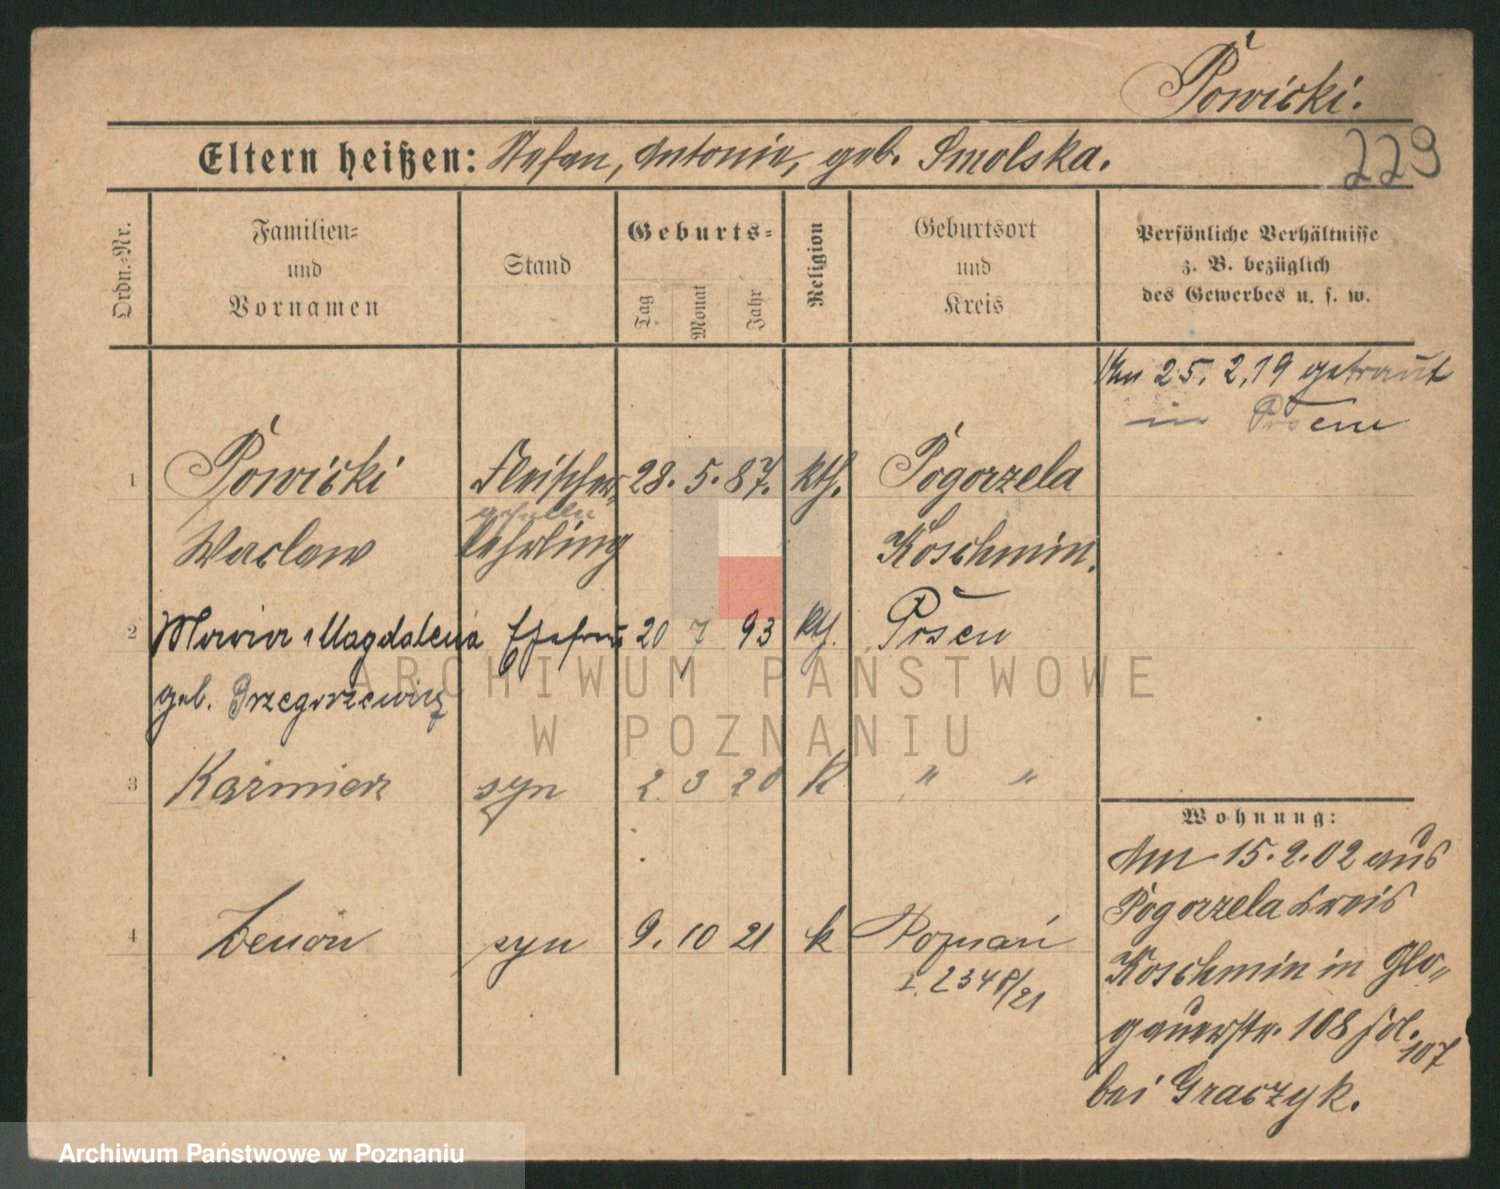 Powicki.
229
Eltern heißen: Stefan, Antonie, geb. Smolska.
Ordn.-Nr.
Familien-
und
Vornamen
Stand
Geburts-
Tag
Monat
Jahr
Religion
Geburtsort
und
Kreis
Persönliche Verhältnisse
z. B. bezüglich
des Gewerbes u. s. w.
Am 25. 2. 19 getraut
in Posen
1 Powicki Fleischer- 28. 5. 87. kth. Pogorzela
geselle
Waclaw Lehrling Koschmin.
2 Maria Magdalena Ehefrau 20 7 93 kth. Posen
geb. Grzegorzewicz
3 Kaźmierz syn 2. 3 20 k " "
4 Zenon syn 9. 10 21 k Poznań
2348/21
Wohnung:
Am 15. 2. 02 aus
Pogorzela Kreis
Koschmin in Glo-
gauerstr. 108 fol. 107
bei Graczyk.
ARCHIWUM PAŃSTWOWE
W POZNANIU
Archiwum Państwowe w Poznaniu